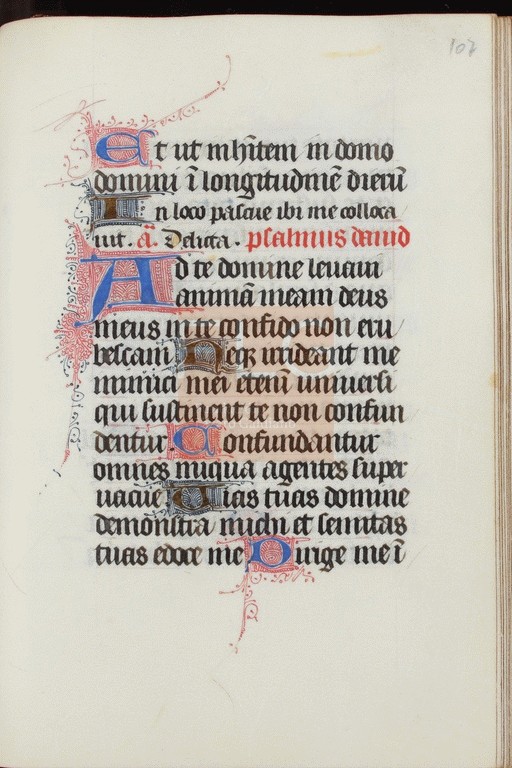 107
Et ut inhītem in domo
domini ī longitudinē dierū
In loco pascue ibi me colloca
uit. a͞. Delicta. psalmus dauid
Ad te domine leuaui
animā meam deus
meus in te confido non eru
bescam Neqꝫ irrideant me
inimici mei etenī uniuersi
qui sustinent te non confun
dentur Confundantur
omnes iniqua agentes super
uacue Uias tuas domine
demonstra michi et semitas
tuas edoce me Dirige me ī